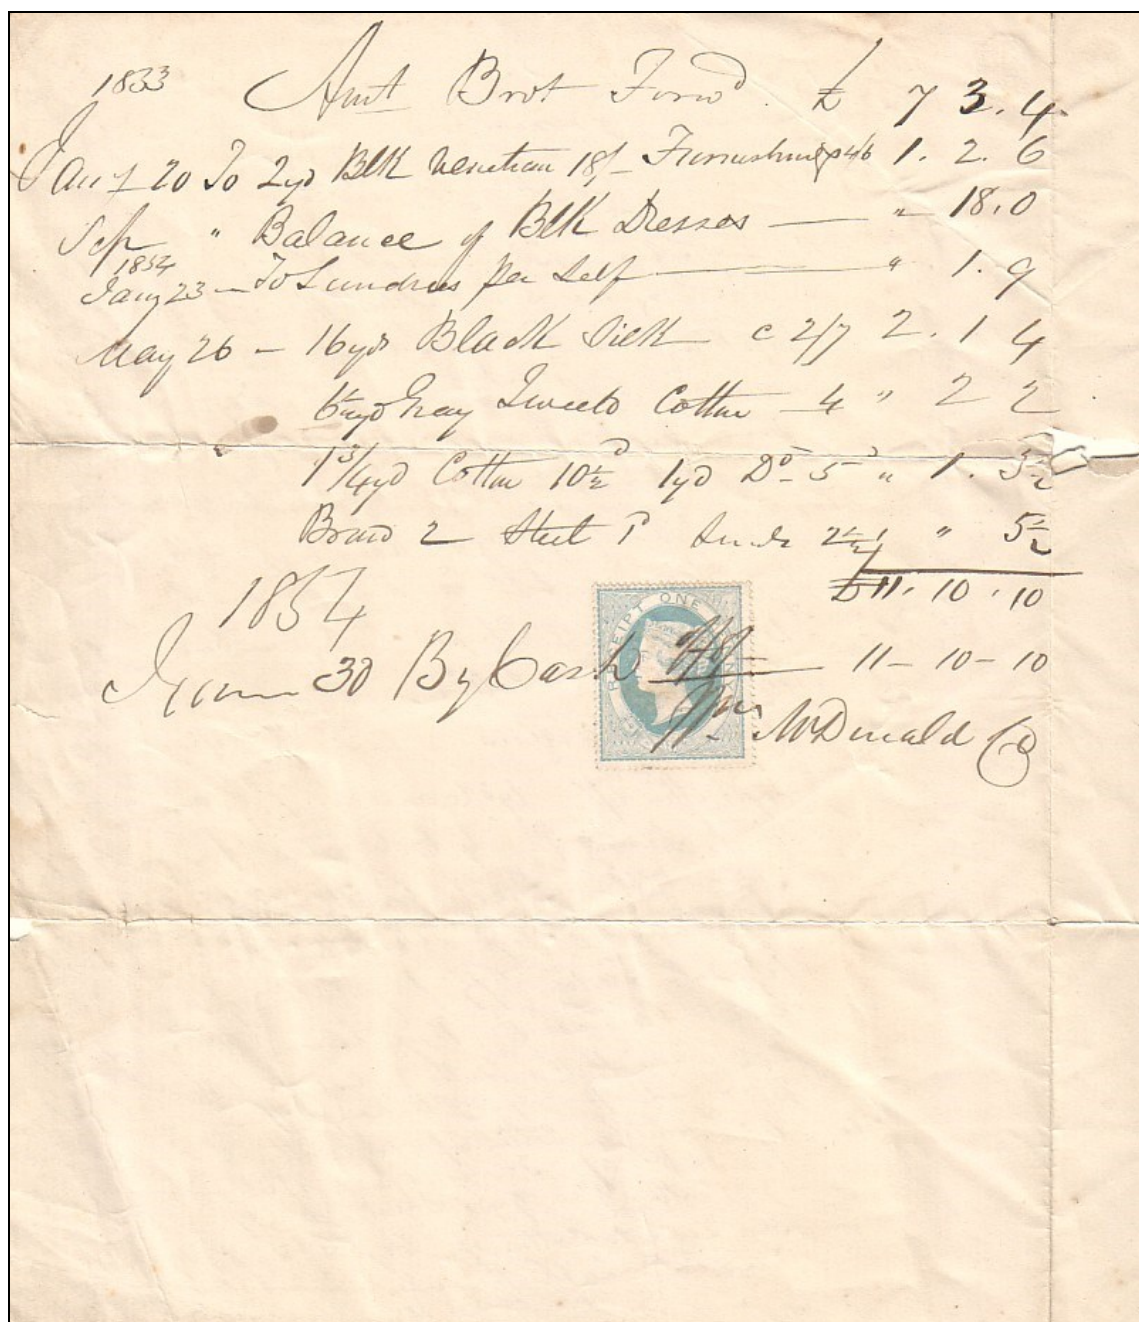 1853 Amt Brot Forwd £ 7 3. 4
Jany 20 To 2yd Blk Venetian 18/- Furnishings 4/6 1. 2. 6
Sep " Balance of Blk Dresses — " 18. 0
1854
Jany 23 — To Sundries per Self — " 1. 9
May 26 — 16yds Black Silk c 2/7 2. 1 4
6½yd Gray Tweeld Cotton 4 " 2 2
1 3/4yd Cotton 10½d 1yd Do 5d " 1. 3½
Braid 2 2½ " 5½
£11. 10. 10
1854
June 30 By Cash 11 – 10 – 10
RECEIPT ONE
Wm McDonald Co